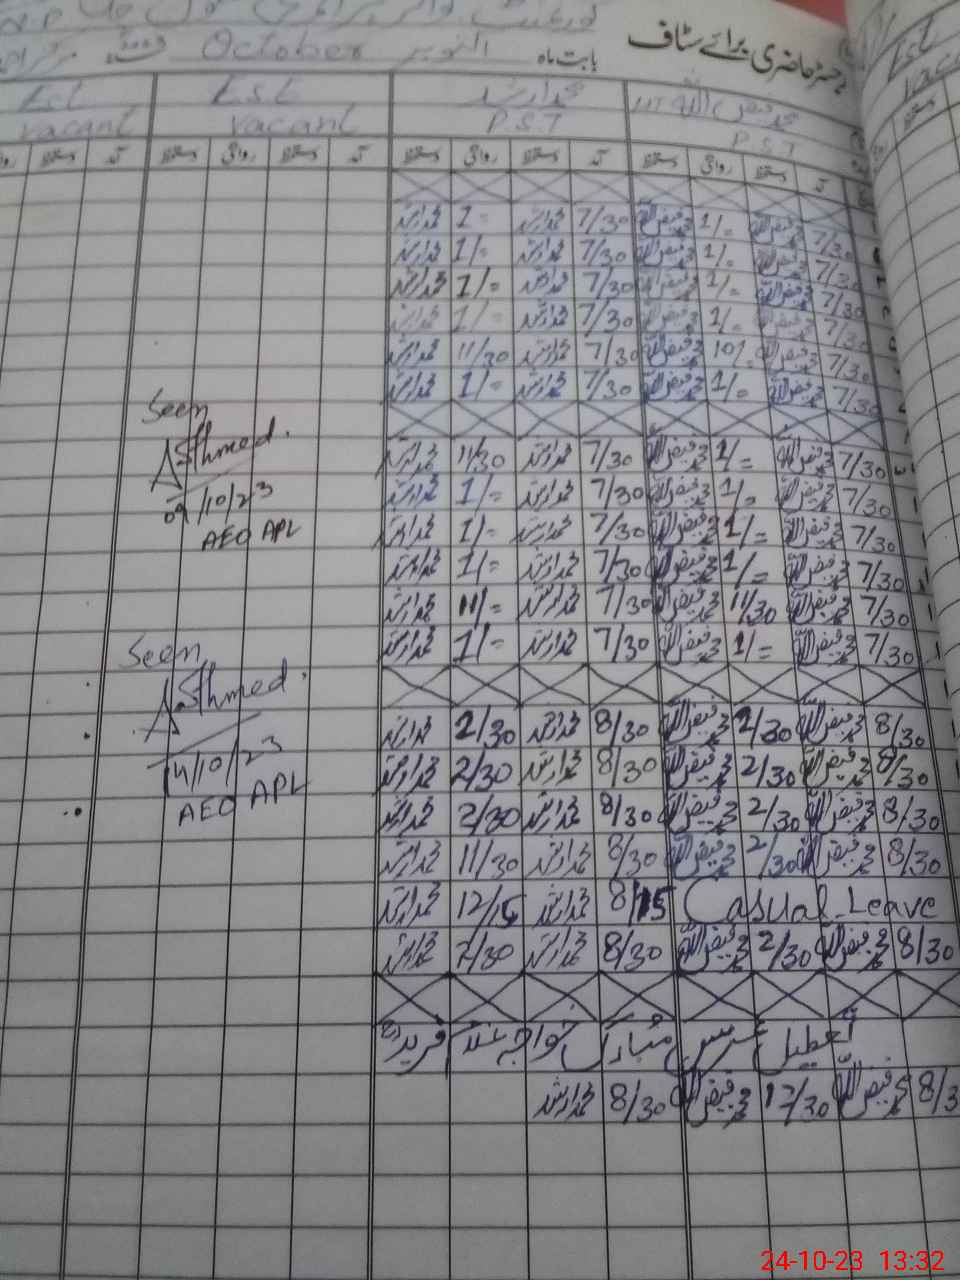 رجسٹر حاضری برائے سٹاف
بابت ماہ اکتوبر October
محمد فیض اللہ محمد ارشد E.S.E
P.S.T P.S.T vacant vacant
آمد دستخط روانگی دستخط آمد دستخط روانگی دستخط آمد دستخط روانگی دستخط آمد دستخط
7/30 محمد فیض اللہ 1/= محمد فیض اللہ 7/30 محمد ارشد 1= محمد ارشد
7/30 محمد فیض اللہ 1/= محمد فیض اللہ 7/30 محمد ارشد 1/= محمد ارشد
7/30 محمد فیض اللہ 1/= محمد فیض اللہ 7/30 محمد ارشد 1/= محمد ارشد
7/30 محمد فیض اللہ 1/= محمد فیض اللہ 7/30 محمد ارشد 1/= محمد ارشد
7/30 محمد فیض اللہ محمد فیض اللہ 7/30 محمد ارشد 11/30 محمد ارشد
7/30 محمد فیض اللہ 1/= محمد فیض اللہ 7/30 محمد ارشد 1/= محمد ارشد
Seen
A.S Ahmed.
09/10/23
AEO APL
7/30 محمد فیض اللہ 1/= محمد فیض اللہ 7/30 محمد ارشد 11/30 محمد ارشد
7/30 محمد فیض اللہ 1/= محمد فیض اللہ 7/30 محمد ارشد 1/= محمد ارشد
7/30 محمد فیض اللہ 1/= محمد فیض اللہ 7/30 محمد ارشد 1/= محمد ارشد
7/30 محمد فیض اللہ 1/= محمد فیض اللہ 7/30 محمد ارشد 1/= محمد ارشد
7/30 محمد فیض اللہ 11/30 محمد فیض اللہ 7/30 محمد ارشد 11/= محمد ارشد
7/30 محمد فیض اللہ 1/= محمد فیض اللہ 7/30 محمد ارشد 1/= محمد ارشد
Seen
A.S Ahmed.
14/10/23
AEO APL
8/30 محمد فیض اللہ 2/30 محمد فیض اللہ 8/30 محمد ارشد 2/30 محمد ارشد
8/30 محمد فیض اللہ 2/30 محمد فیض اللہ 8/30 محمد ارشد 2/30 محمد ارشد
8/30 محمد فیض اللہ 2/30 محمد فیض اللہ 8/30 محمد ارشد 2/30 محمد ارشد
8/30 محمد فیض اللہ 2/30 محمد فیض اللہ 8/30 محمد ارشد 11/30 محمد ارشد
Casual Leave 8/15 محمد ارشد 12/15 محمد ارشد
8/30 محمد فیض اللہ 2/30 محمد فیض اللہ 8/30 محمد ارشد 2/30 محمد ارشد
تعطیل عرس مبارک خواجہ غلام فرید
8/30 محمد فیض اللہ 12/30 محمد فیض اللہ 8/30 محمد ارشد
24-10-23 13:32